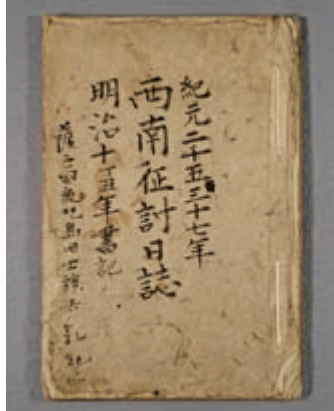 紀元二千五三十七年
西南征討日誌
明治十五年書記